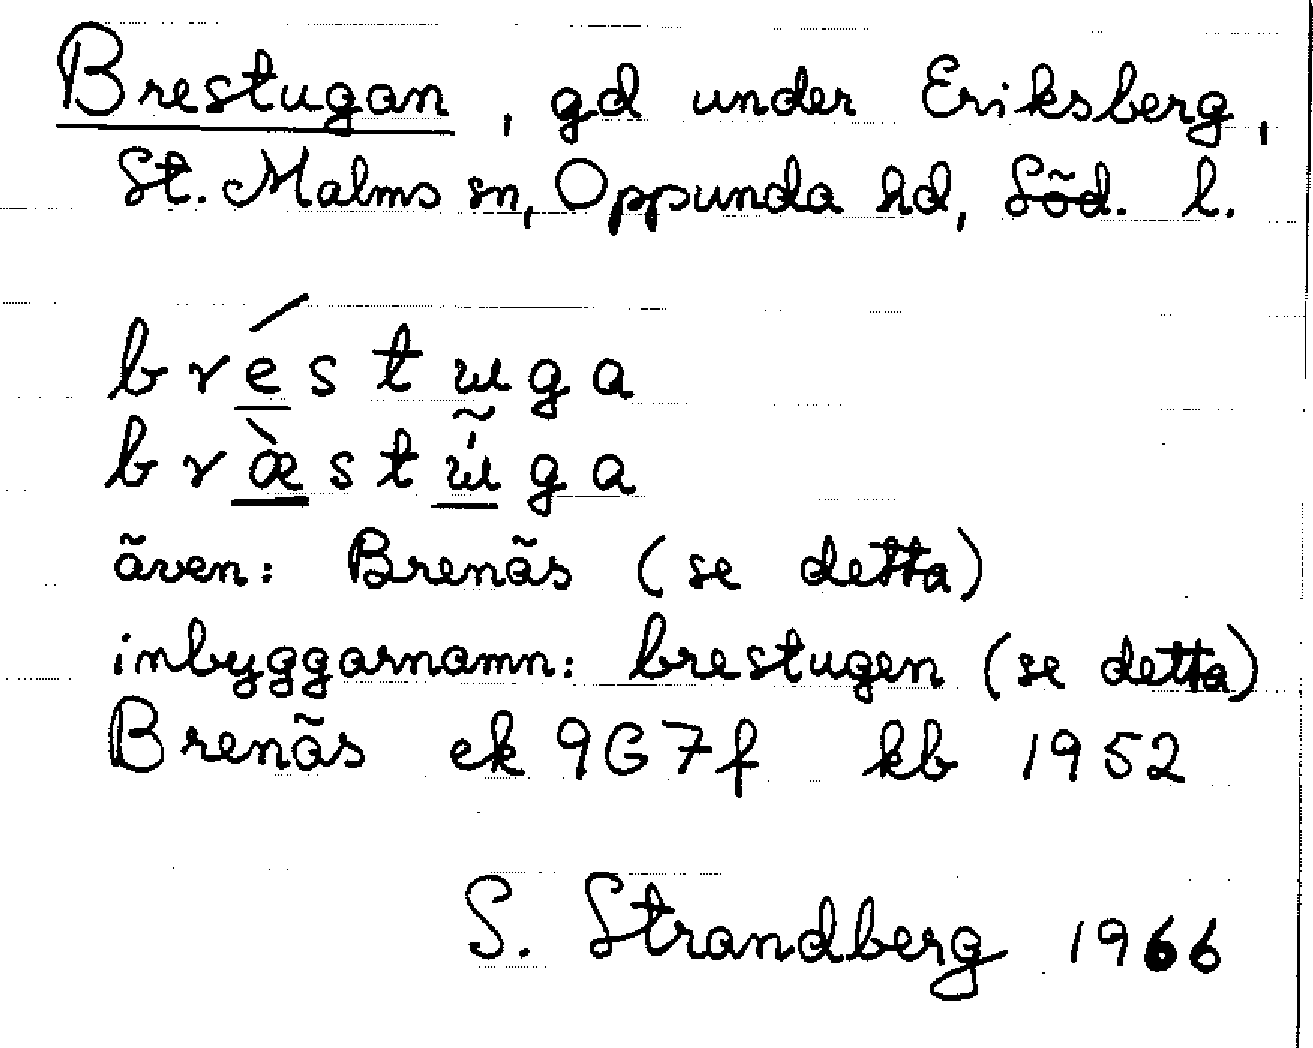 Brestugan, gd under Eriksberg,
St. Malms sn, Oppunda hd, Söd. l.
bréstuga
bræ̀stúga
även: Brenäs (se detta)
inbyggarnamn: brestugen (se detta)
Brenäs ek 9G7f kb 1952
S. Strandberg 1966